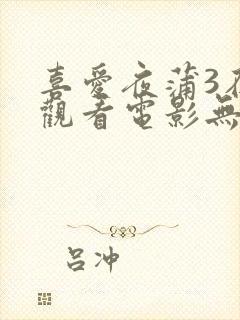 喜愛夜蒲3
觀看電影無
呂冲